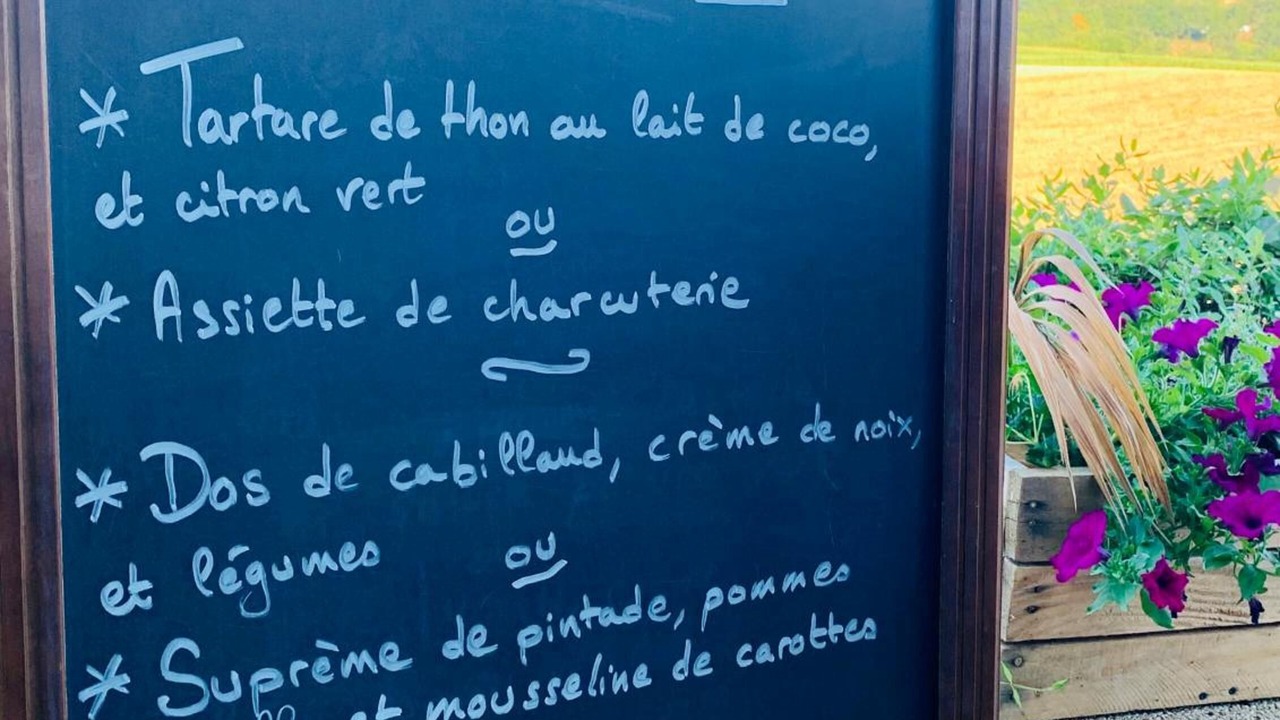 * Tartare de thon au lait de coco,
et citron vert
ou
* Assiette de charcuterie
* Dos de cabillaud, crème de noix,
et légumes
ou
* Suprême de pintade, pommes
et mousseline de carottes